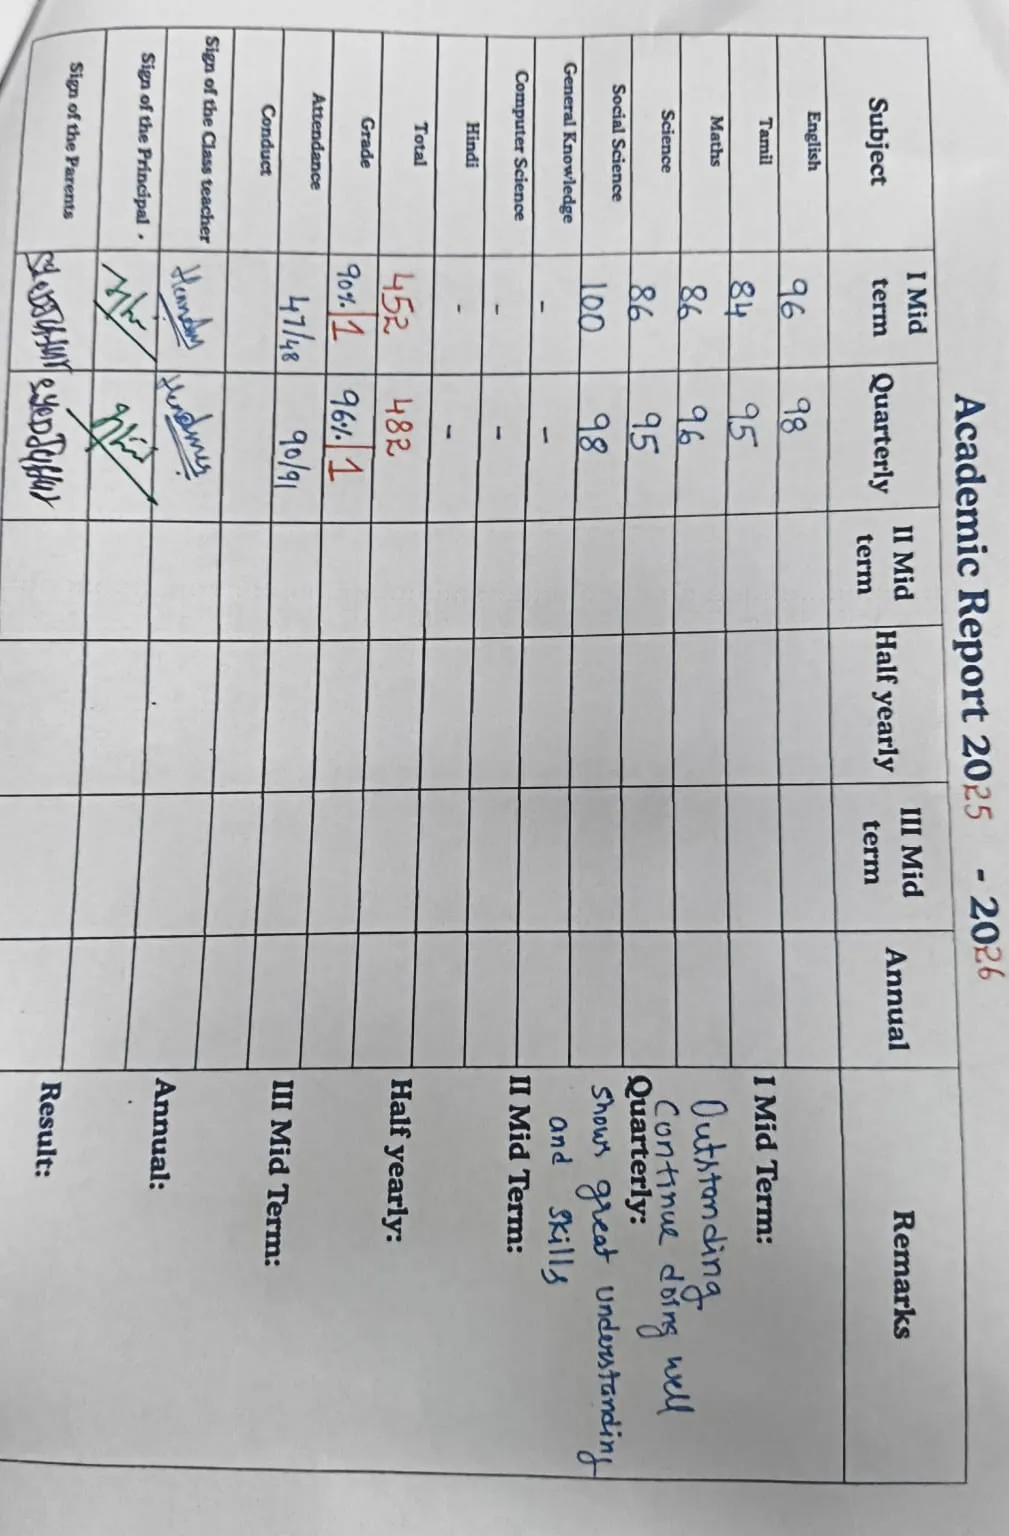 Academic Report 2025 - 2026
Subject I Mid term Quarterly II Mid term Half yearly III Mid term Annual Remarks
English 96 98
Tamil 84 95
Maths 86 96
Science 86 95
Social Science 100 98
General Knowledge - -
Computer Science - -
Hindi - -
Total 452 482
Grade 90% 1 96% 1
Attendance 47/48 90/91
Conduct
Sign of the Class teacher
Sign of the Principal
Sign of the Parents
I Mid Term:
Outstanding
Continue doing well
Quarterly:
Shows great understanding
and skills
II Mid Term:
Half yearly:
III Mid Term:
Annual:
Result: